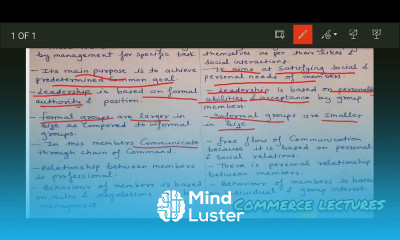 1 OF 1
by management for specific task.
- Its main purpose is to achieve
predetermined common goal.
- Leadership is based on formal
authority & position.
- Formal groups are larger in
size as compared to informal
groups.
- In this members Communicate
through chain of Command
- Relationship between members
is professional.
- Behaviour of members is based
on rules & regulations
themselves as per their likes &
social interactions.
- It aims at satisfying social &
personal needs of members.
- Leadership is based on personal
abilities & acceptance by group
members.
- Informal groups are smaller
in size.
- free flow of Communication
because it is based on personal
& social relations.
- There is personal relationship
between members.
- Behaviour of members is based
individual & group interest
Mind
Luster
COMMERCE LECTURES